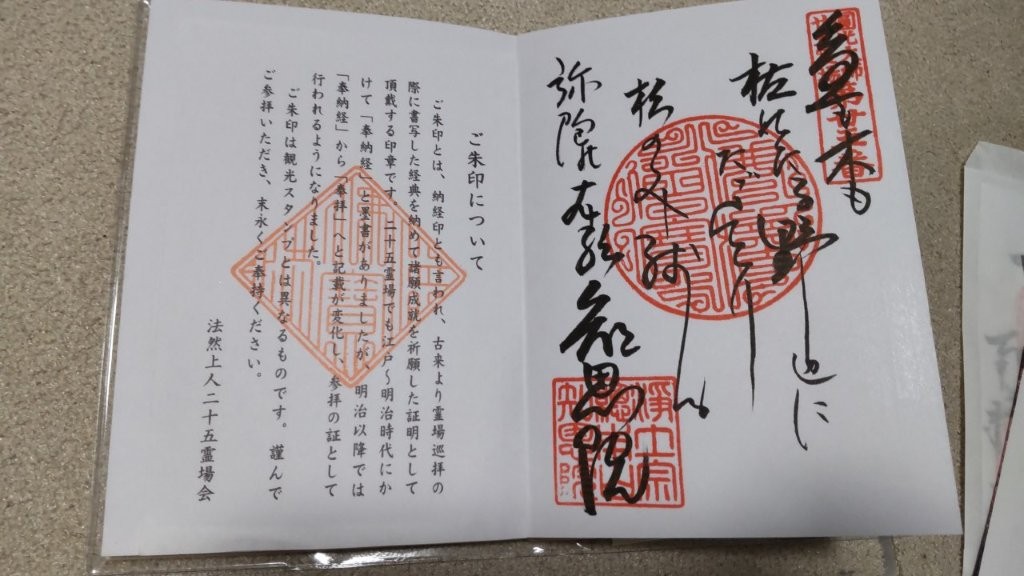 草も木も
枯れたる野辺に
ただひとり
松のみ残る
弥陀の本願
知恩院
淨土宗
知恩院
ご朱印について
ご朱印とは、納経印とも言われ、古来より霊場巡拝の
際に書写した経典を納めて諸願成就を祈願した証明として
頂戴する印章です。二十五霊場でも江戸～明治時代にか
けて「奉納経」と墨書がありましたが、明治以降では
「奉納経」から「奉拝」へと記載が変化し、参拝の証として
行われるようになりました。
ご朱印は観光スタンプとは異なるものです。謹んで
ご参拝いただき、末永くご奉持ください。
法然上人二十五霊場会